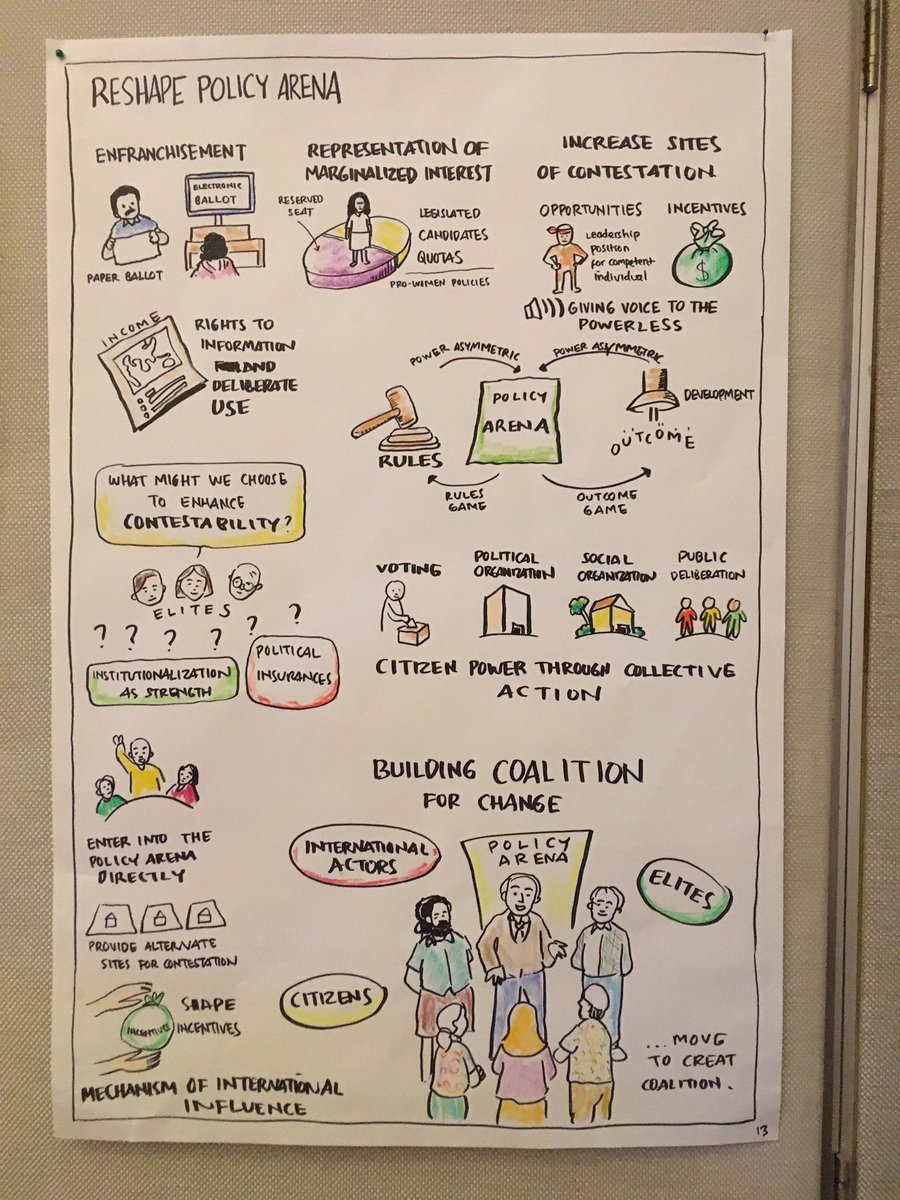 RESHAPE POLICY ARENA
ENFRANCHISEMENT
ELECTRONIC
BALLOT
PAPER BALLOT
REPRESENTATION OF
MARGINALIZED INTEREST
RESERVED
SEAT
LEGISLATED
CANDIDATES
QUOTAS
PRO-WOMEN POLICIES
INCREASE SITES
OF CONTESTATION
OPPORTUNITIES
Leadership
position
for competent
individual
INCENTIVES
$
GIVING VOICE TO THE
POWERLESS
INCOME
RIGHTS TO
INFORMATION
AND
DELIBERATE
USE
POWER ASYMMETRIC
POWER ASYMMETRIC
POLICY
ARENA
RULES
DEVELOPMENT
OUTCOME
RULES
GAME
OUTCOME
GAME
WHAT MIGHT WE CHOOSE
TO ENHANCE
CONTESTABILITY?
ELITES
? ? ? ? ? ?
INSTITUTIONALIZATION
AS STRENGTH
POLITICAL
INSURANCES
VOTING
POLITICAL
ORGANIZATION
SOCIAL
ORGANIZATION
PUBLIC
DELIBERATION
CITIZEN POWER THROUGH COLLECTIVE
ACTION
ENTER INTO THE
POLICY ARENA
DIRECTLY
PROVIDE ALTERNATE
SITES FOR CONTESTATION
INCENTIVE
SHAPE
INCENTIVES
MECHANISM OF INTERNATIONAL
INFLUENCE
BUILDING COALITION
FOR CHANGE
INTERNATIONAL
ACTORS
POLICY
ARENA
ELITES
CITIZENS
...MOVE
TO CREAT
COALITION.
13